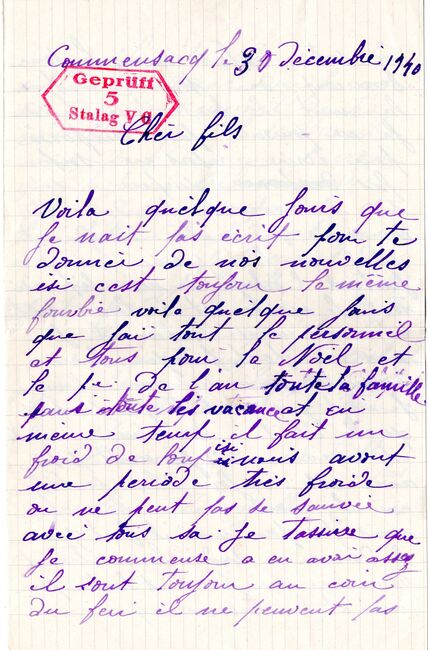 Commensacq le 30 décembre 1940
Geprüft
5
Stalag V C
Cher fils
Voila quelque jours que
Je nait pas ecrit pour te
donner de nos nouvelles
isi cest toujour la même
fourbie voila quelque jours
que jai tout le personnel
et tous pour la Noel et
le 1er de l'an toute la famille
dans toute les vacance et en
même temp il fait un
froid de loup isi nous avont
une periode tres froide
on ne peut pas se sauvée
avec tous sa Je tassure que
Je commense a en avoir assez
il sont toujour au coin
du feu il ne peuvent pas